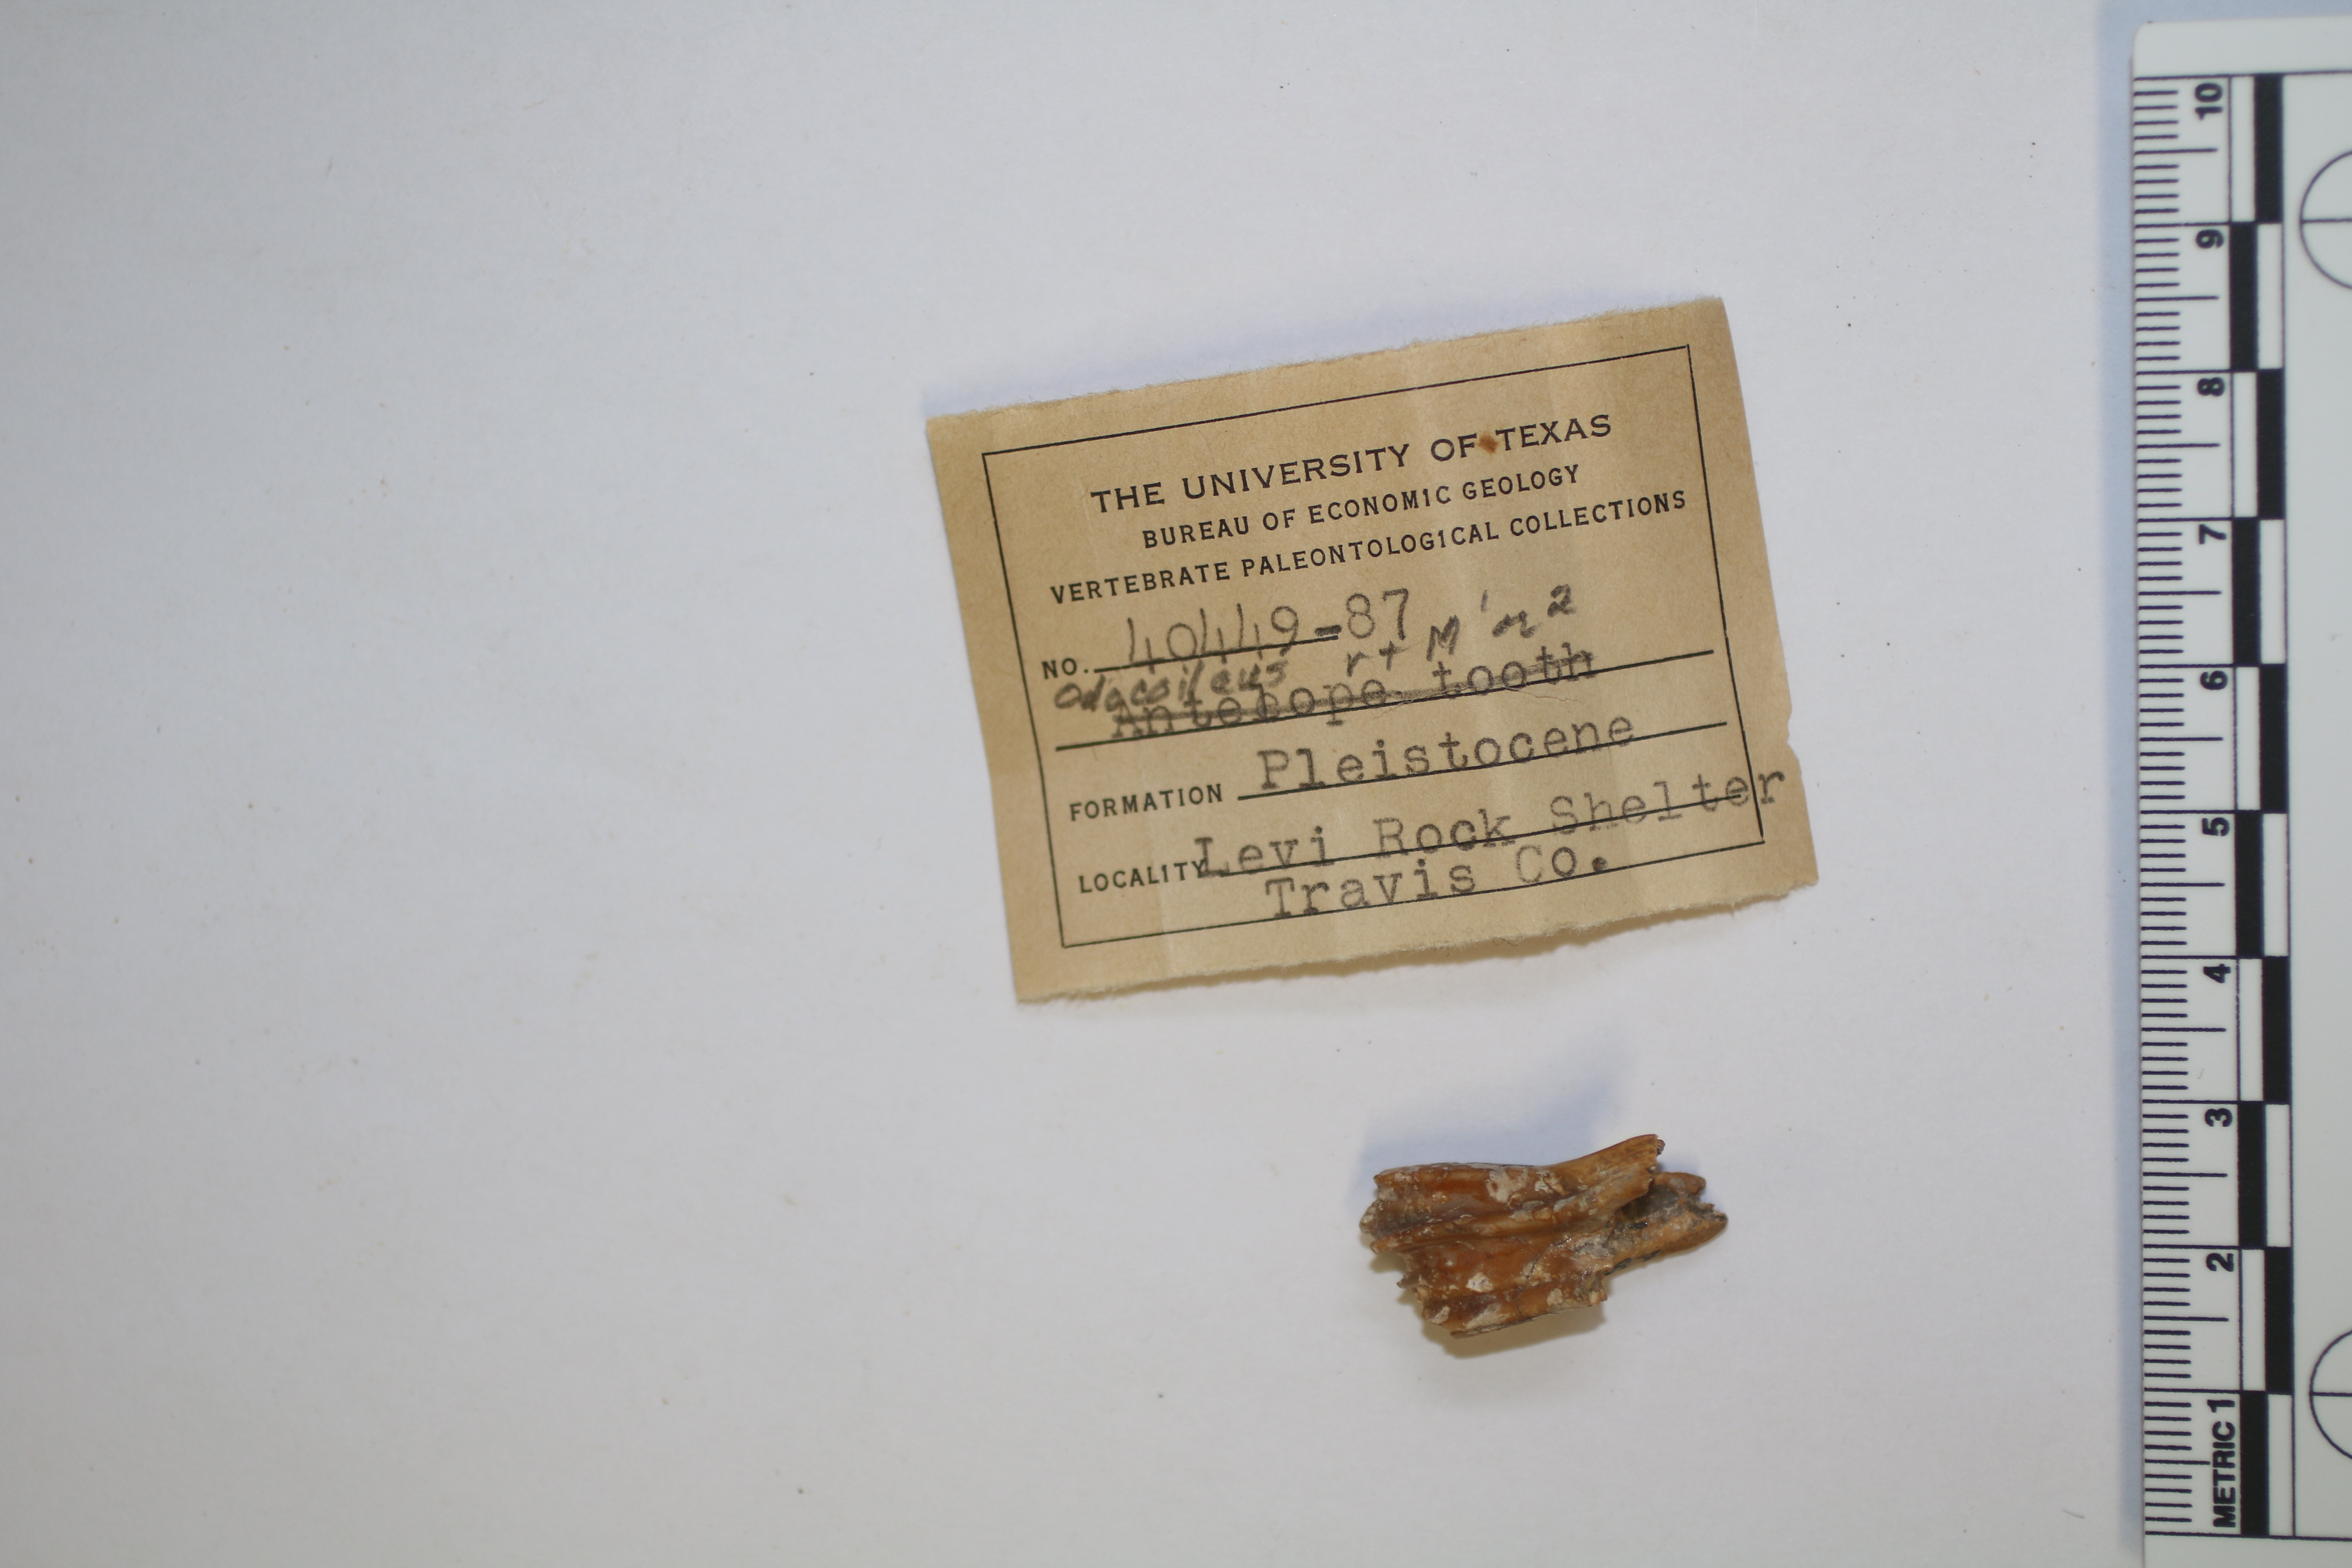 THE UNIVERSITY OF TEXAS
BUREAU OF ECONOMIC GEOLOGY
VERTEBRATE PALEONTOLOGICAL COLLECTIONS
NO. 40449-87
rt M' or 2
Antelope tooth
FORMATION Pleistocene
LOCALITY Levi Rock Shelter
Travis Co.
METRIC 1 2 3 4 5 6 7 8 9 10